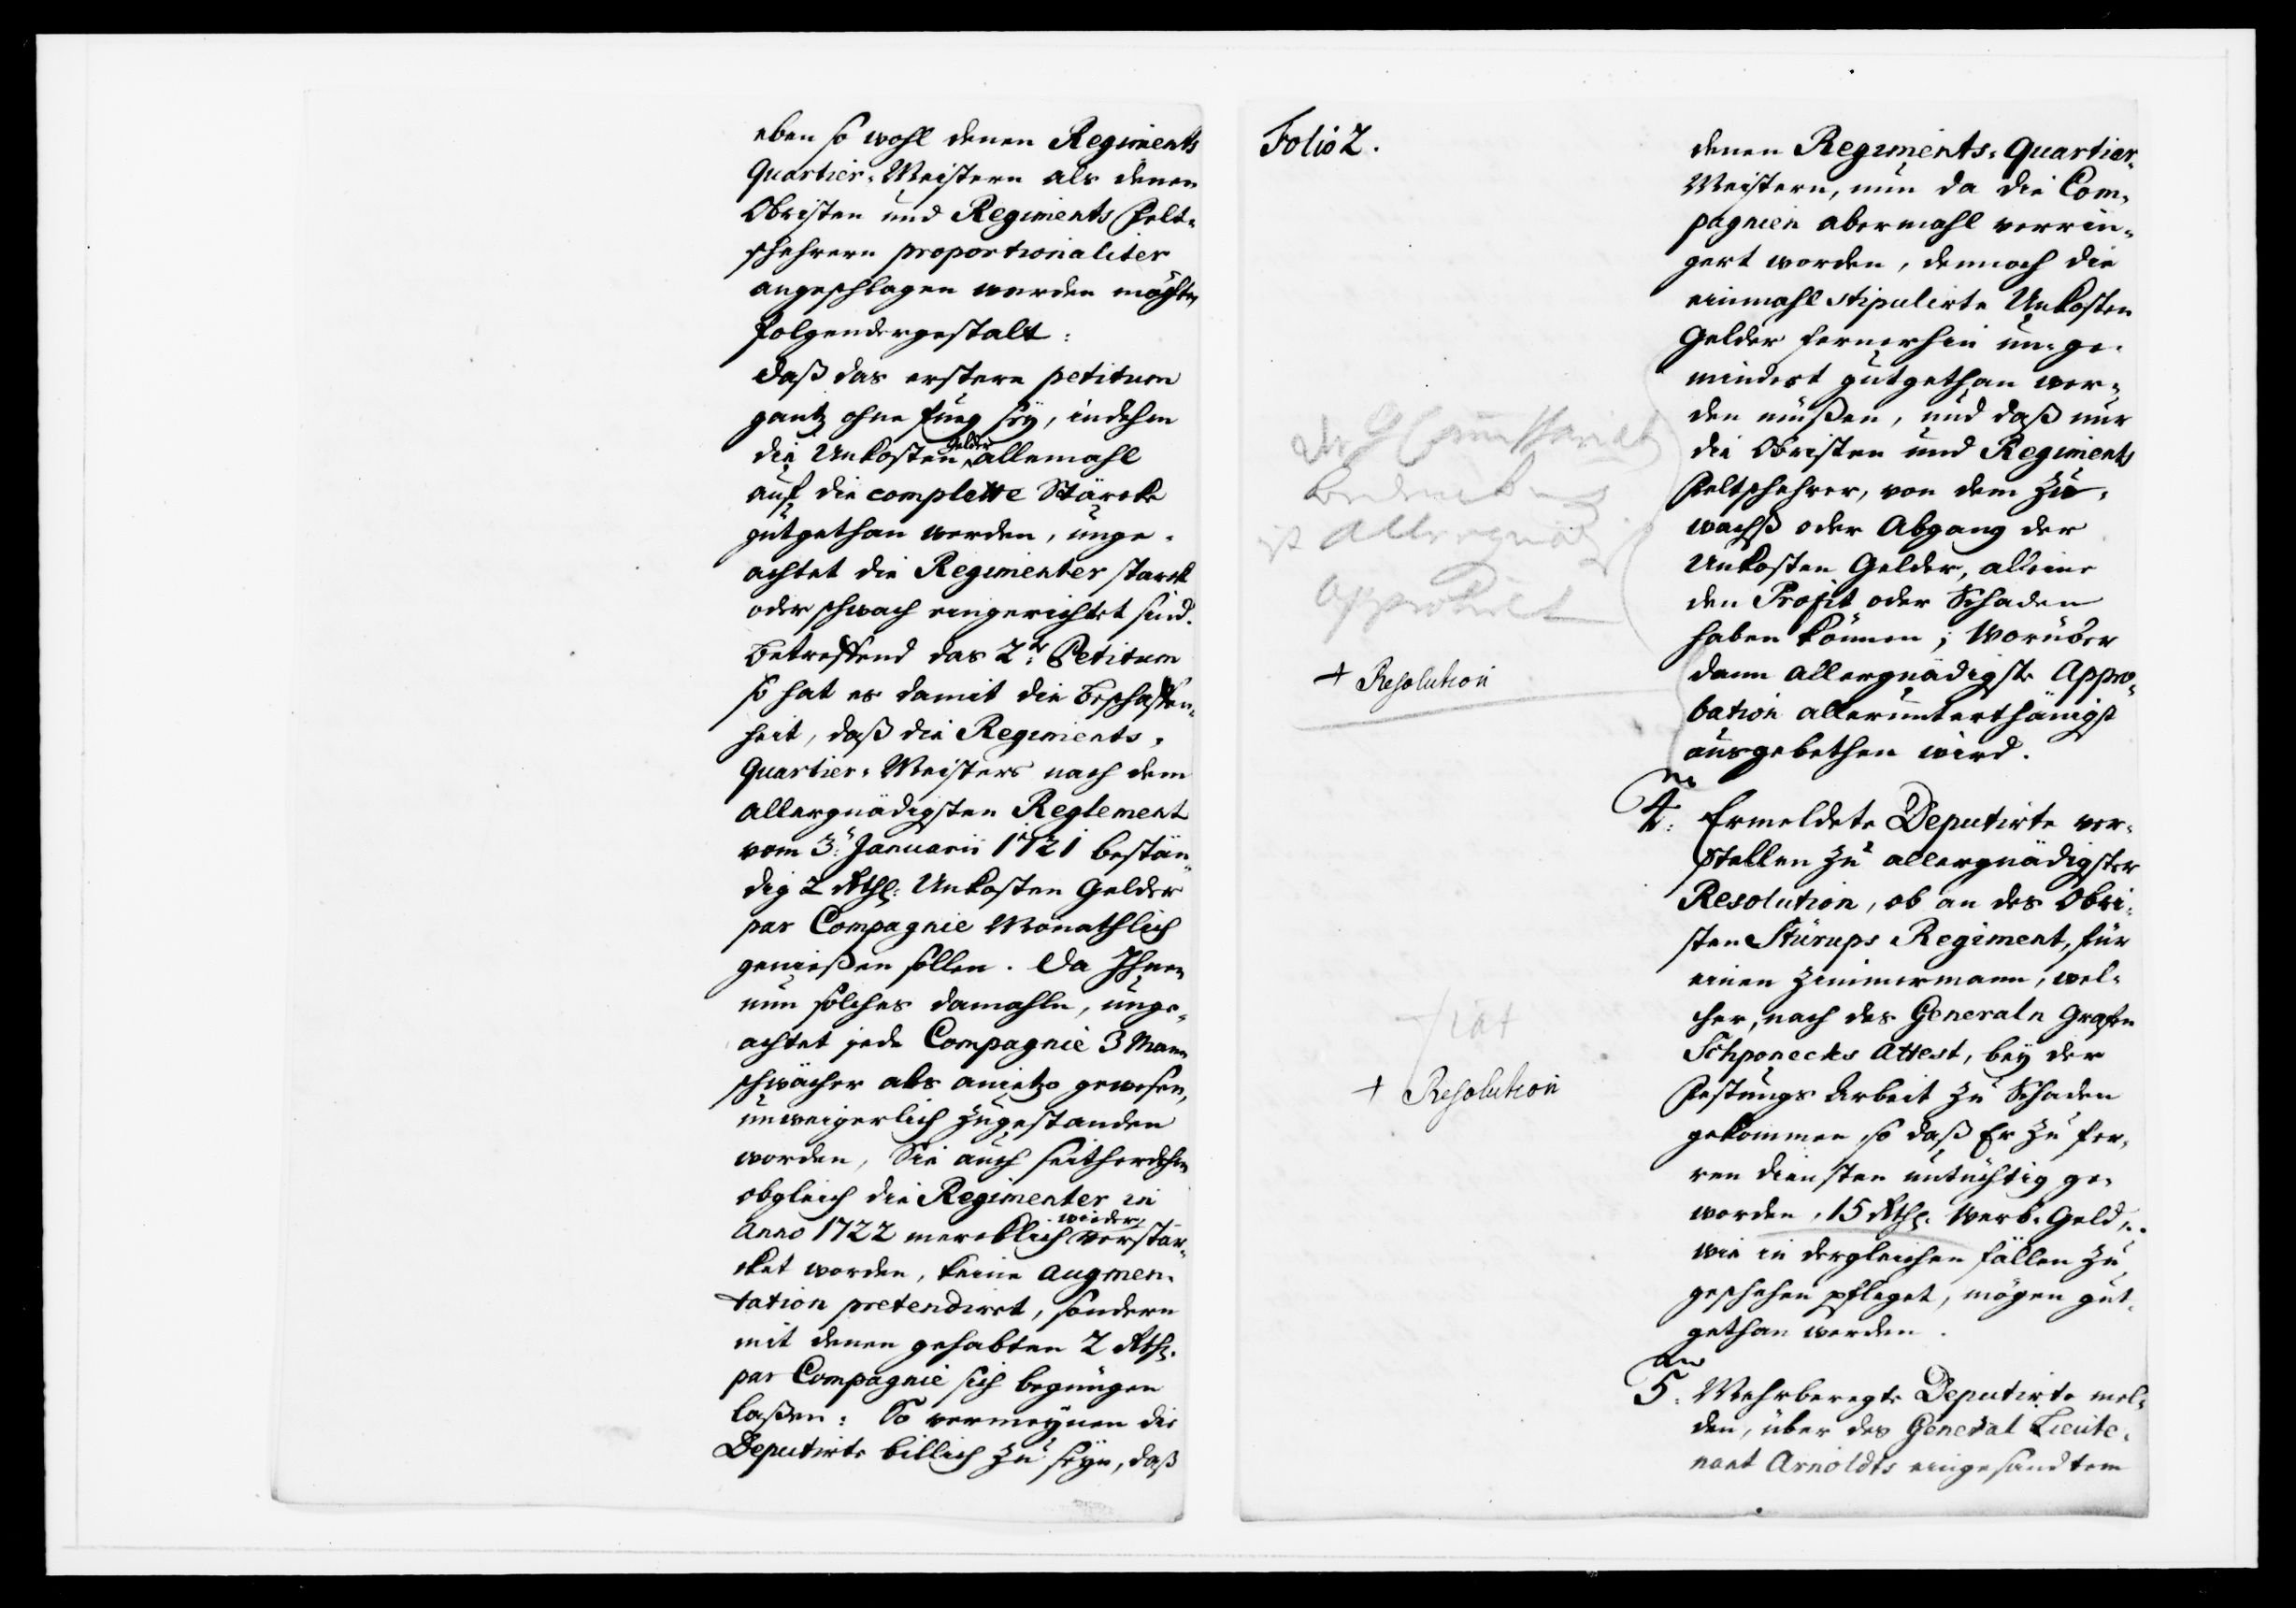 eben so wohl denen Regiments
Quartier-Meistern als denen
Obristen und Regiments Felt-
schehrern proportionaliter
angeschlagen werden möchte,
folgendergestalt:
Daß das erstere petitum
gantz ohne fueg sey, indehm
die Unkosten Gelder allemahl
auf die complette Stärcke
gutgethan werden, unge-
achtet die Regimenter starck
oder schwach eingerichtet sind.
Betreffend das 2te Petitum
so hat es damit die beschaffen-
heit, daß die Regiments-
Quartier-Meisters nach dem
allergnädigsten Reglement
vom 3t Januarii 1721 bestän-
dig 2 Rthl: Unkosten Gelder
par Compagnie Monathlich
genießen sollen. Da Ihnen
nun solches damahln, unge-
achtet jede Compagnie 3 Mann
schwächer als anietzo gewesen,
unweigerlich zugestanden
worden, Sie auch seitherdehm
obgleich die Regimenter in
Anno 1722 mercklich wieder verstär-
cket worden, keine Augmen-
tation pretendirt, sondern
mit denen gehabten 2 Rth.
par Compagnie sich begnügen
laßen: So vermeynen die
Deputirte billich zu seyn, daß
Folio 2.
denen Regiments-Quartier-
Meistern, nun da die Com-
pagnien abermahl verrin-
gert worden, dennoch die
einmahl stipulirte Unkosten
Gelder fernerhin un-ge-
mindert gutgethan wer-
den müßen, und daß nur
die Obristen und Regiments
Feltschehrer, von dem Zu-
wachß oder Abgang der
Unkosten Gelder, alleine
den Profit oder Schaden
haben können; Worüber
dann allergnädigste Appro-
bation allerunterthänigst
ausgebethen wird.
G Commissariats
ist allergnädigst
approbirt
+ Resolution
4. Ermeldete Deputirte ver-
stellen zu allergnädigster
Resolution, ob an des Obri-
sten Stürups Regiment, für
einen Zimmermann, wel-
cher, nach des Generaln Grafen
Schponecks Attest, bey der
Festungs Arbeit zu Schaden
gekommen, so daß Er zu fer-
ren diensten untüchtig ge-
worden, 15 Rth. Werb-Geld,
wie in dergleichen fällen zu
geschehen pfleget, mögen gut-
gethan werden.
fiat
+ Resolution
5. Mehrberegte Deputirte mel-
den, über des General Lieute-
nant Arnoldts eingesandtem